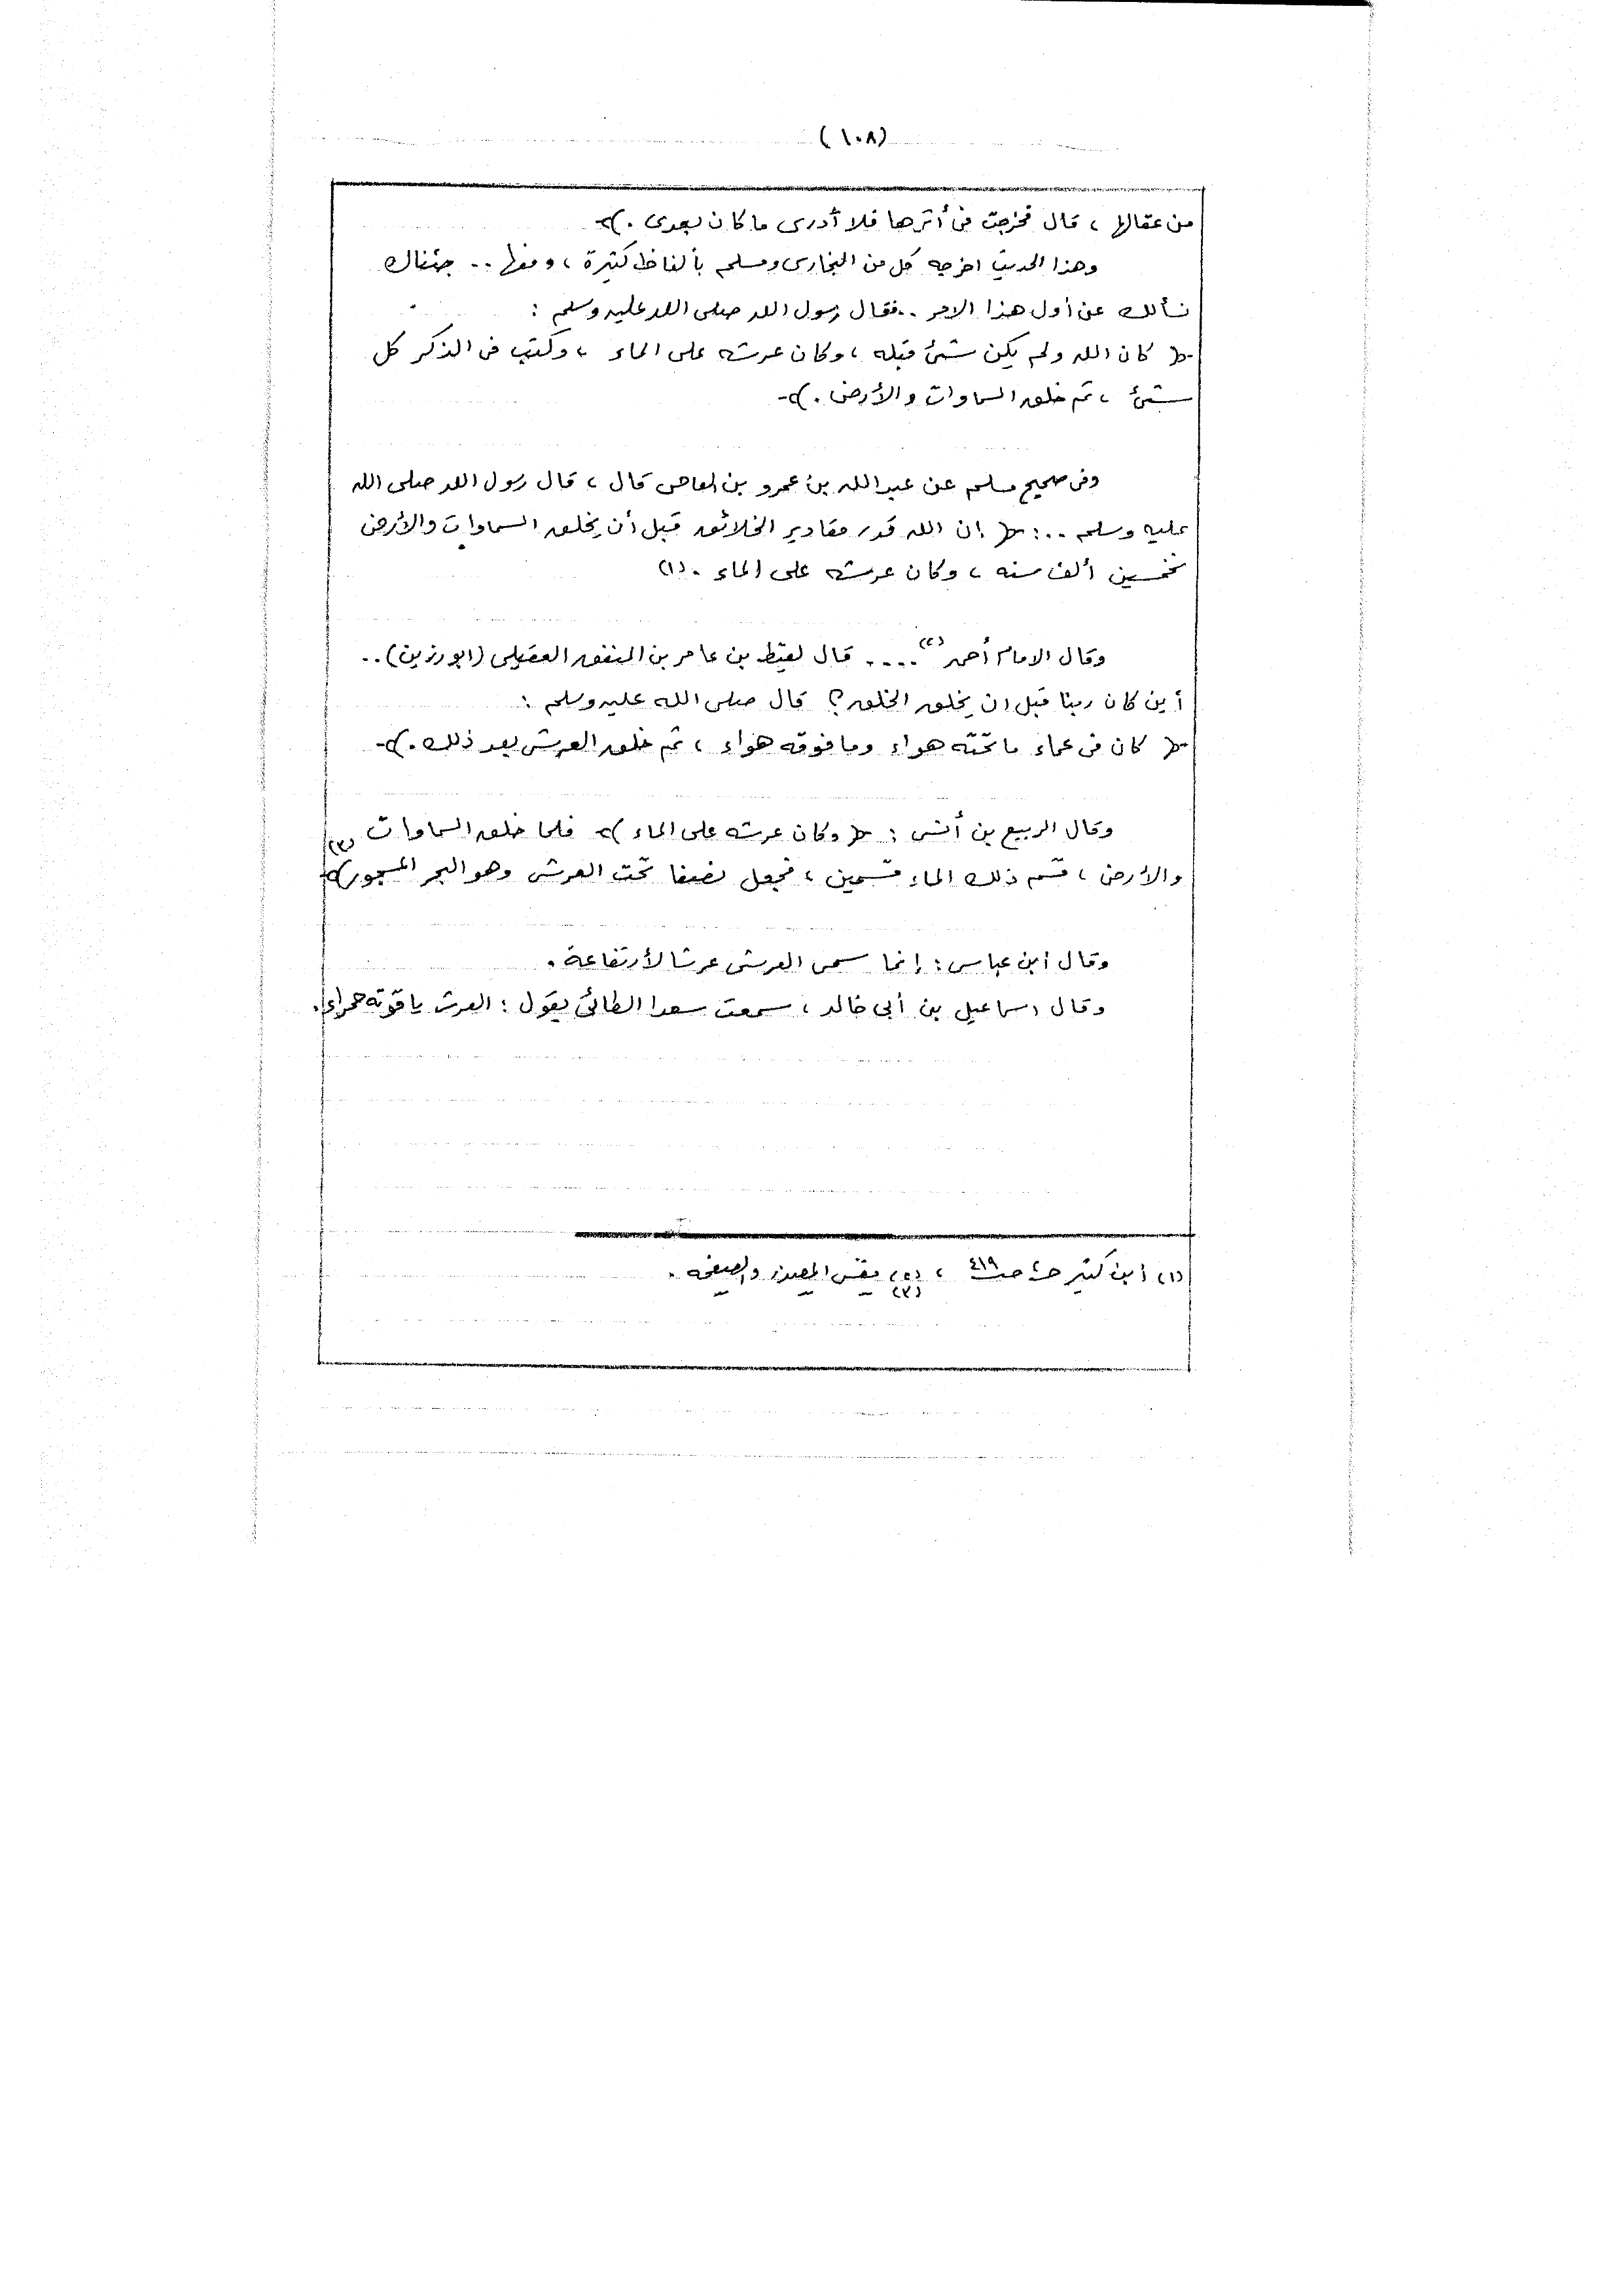 (١٠٨)
من عقالها ، قال فخرجت فى أثرها فلا أدرى ما كان بعدى . )
وهذا الحديث اخرجه كل من البخارى ومسلم بألفاظ كثيرة ، ومنها .. جئناك
نسألك عن أول هذا الامر .. فقال رسول الله صلى الله عليه وسلم :
( كان الله ولم يكن شئ قبله ، وكان عرشه على الماء ، وكتب فى الذكر كل
شئ ، ثم خلق السماوات والأرض . )
وفى صحيح مسلم عن عبدالله بن عمرو بن العاص قال ، قال رسول الله صلى الله
عليه وسلم .. : ( إن الله قدر مقادير الخلائق قبل أن يخلق السماوات والأرض
بخمسين ألف سنه ، وكان عرشه على الماء . (١)
وقال الامام أحمد (٢) .... قال لقيط بن عامر بن المنفق العقيلى (ابو رزين) ..
أين كان ربنا قبل ان يخلق الخلق ؟ قال صلى الله عليه وسلم :
( كان فى عماء ما تحته هواء وما فوقه هواء ، ثم خلق العرش بعد ذلك . )
وقال الربيع بن أنس : ( وكان عرشه على الماء ) فلما خلق السماوات
والأرض ، قسم ذلك الماء قسمين ، فجعل نصفا تحت العرش وهو البحر المسجور ) (٣)
وقال ابن عباس : إنما سمى العرش عرشا لأرتفاعة .
وقال اسماعيل بن أبى خالد ، سمعت سعدا الطائى يقول : العرش ياقوته حمراء .
(١) ابن كثير ص ٤١٩ ، (٢) (٣) نفس المصدر والصفحه .